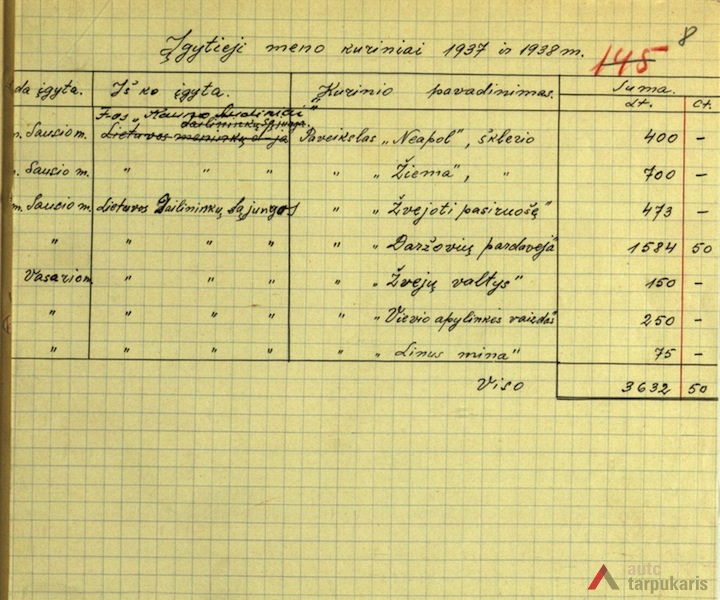 8
Įgytieji meno kuriniai 1937 ir 1938 m. 145
da įgyta. Iš ko įgyta. Kurinio pavadinimas. Suma.
Lt. Ct.
F-os „Kauno Audiniai"
Sausio m. Lietuvos meninkų d-ja Paveikslas „Neapol", šklerio 400 –
Sausio m. " " " " „ Žiema", " 700 –
m. Sausio m. Lietuvos Dailininkų Sąjungos " „ Žvejoti pasiruošę" 473 –
" " " " " „ Daržovių pardavėja 1584 50
Vasario m. " " " " „ Žvejų valtys" 150 –
" " " " " „ Vievio apylinkės vaizdas 250 –
" " " " " „ Linus mina" 75 –
Viso 3632 50
autc
tarpukaris